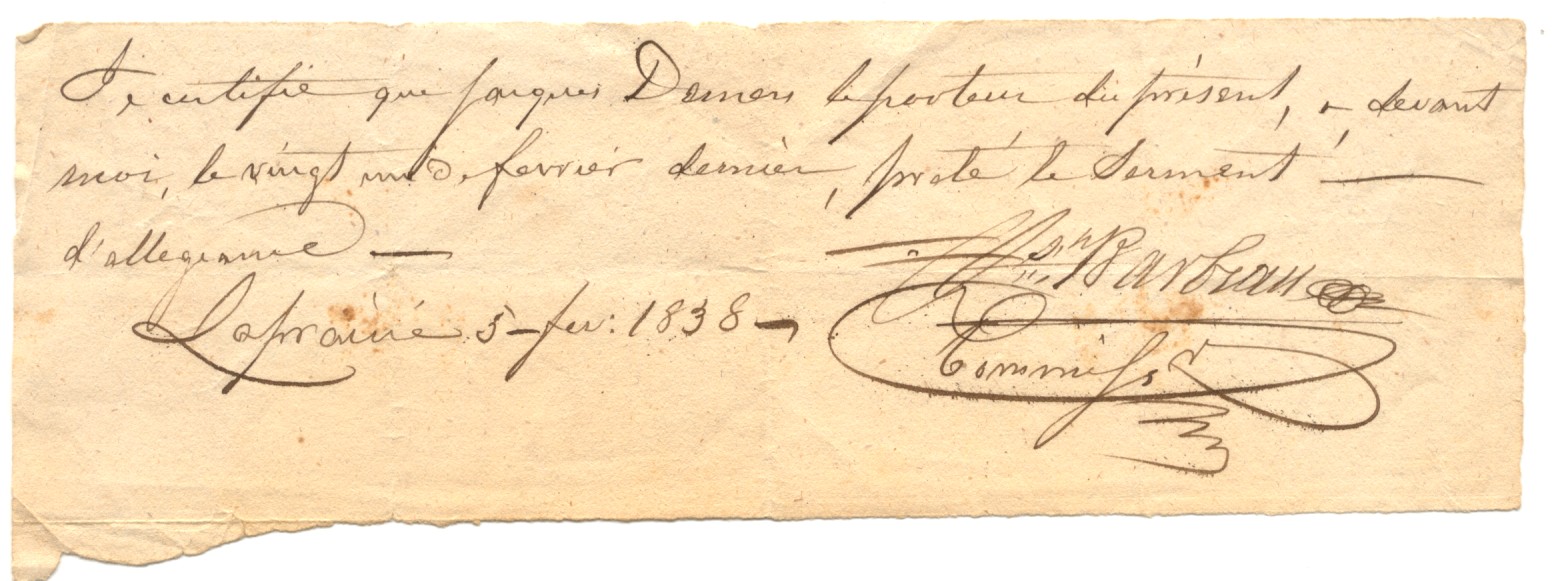 Je certifie que Jacques Demers le porteur du présent, a devant
moi, le vingt un de fevrier dernier, preté le Serment —
d'allegeance —
Barbeau
Laprairie 5 – fev: 1838 –
Commissr